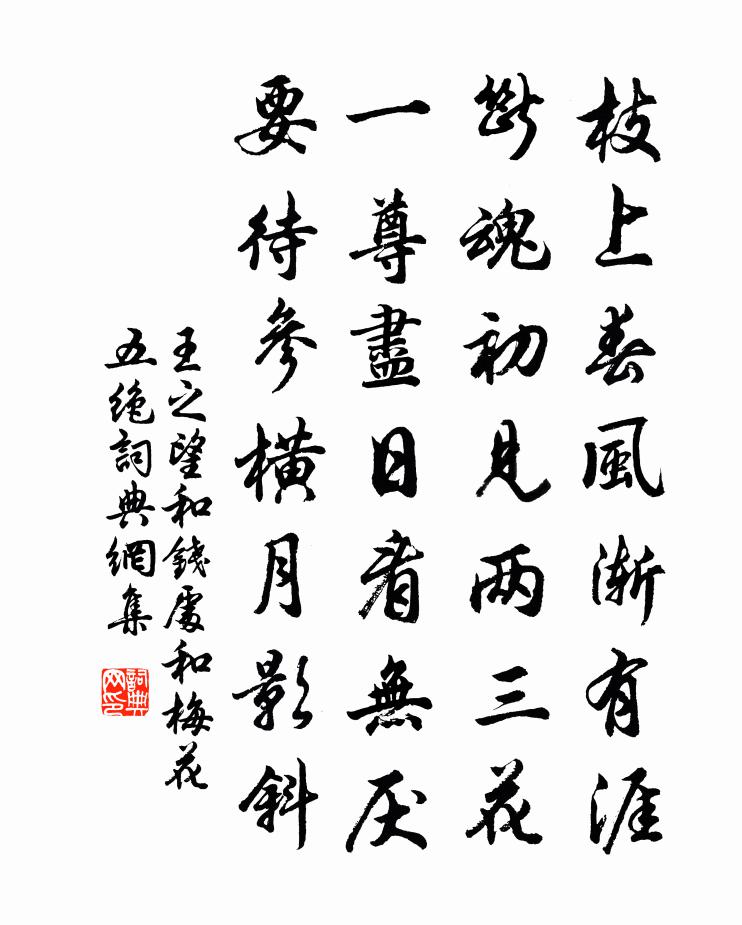 枝上春風漸有涯
斷魂初見两三花
一尊盡日看無厌
要待參橫月影斜
王之望和錢處和梅花
五絶詞典網集
詞典網印